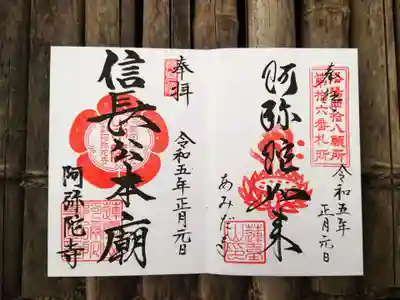 奉拝
阿弥陀如来
第拾六番札所
令和五年
正月元日
あみだ寺
奉拝
信長公本廟
令和五年正月元日
阿弥陀寺